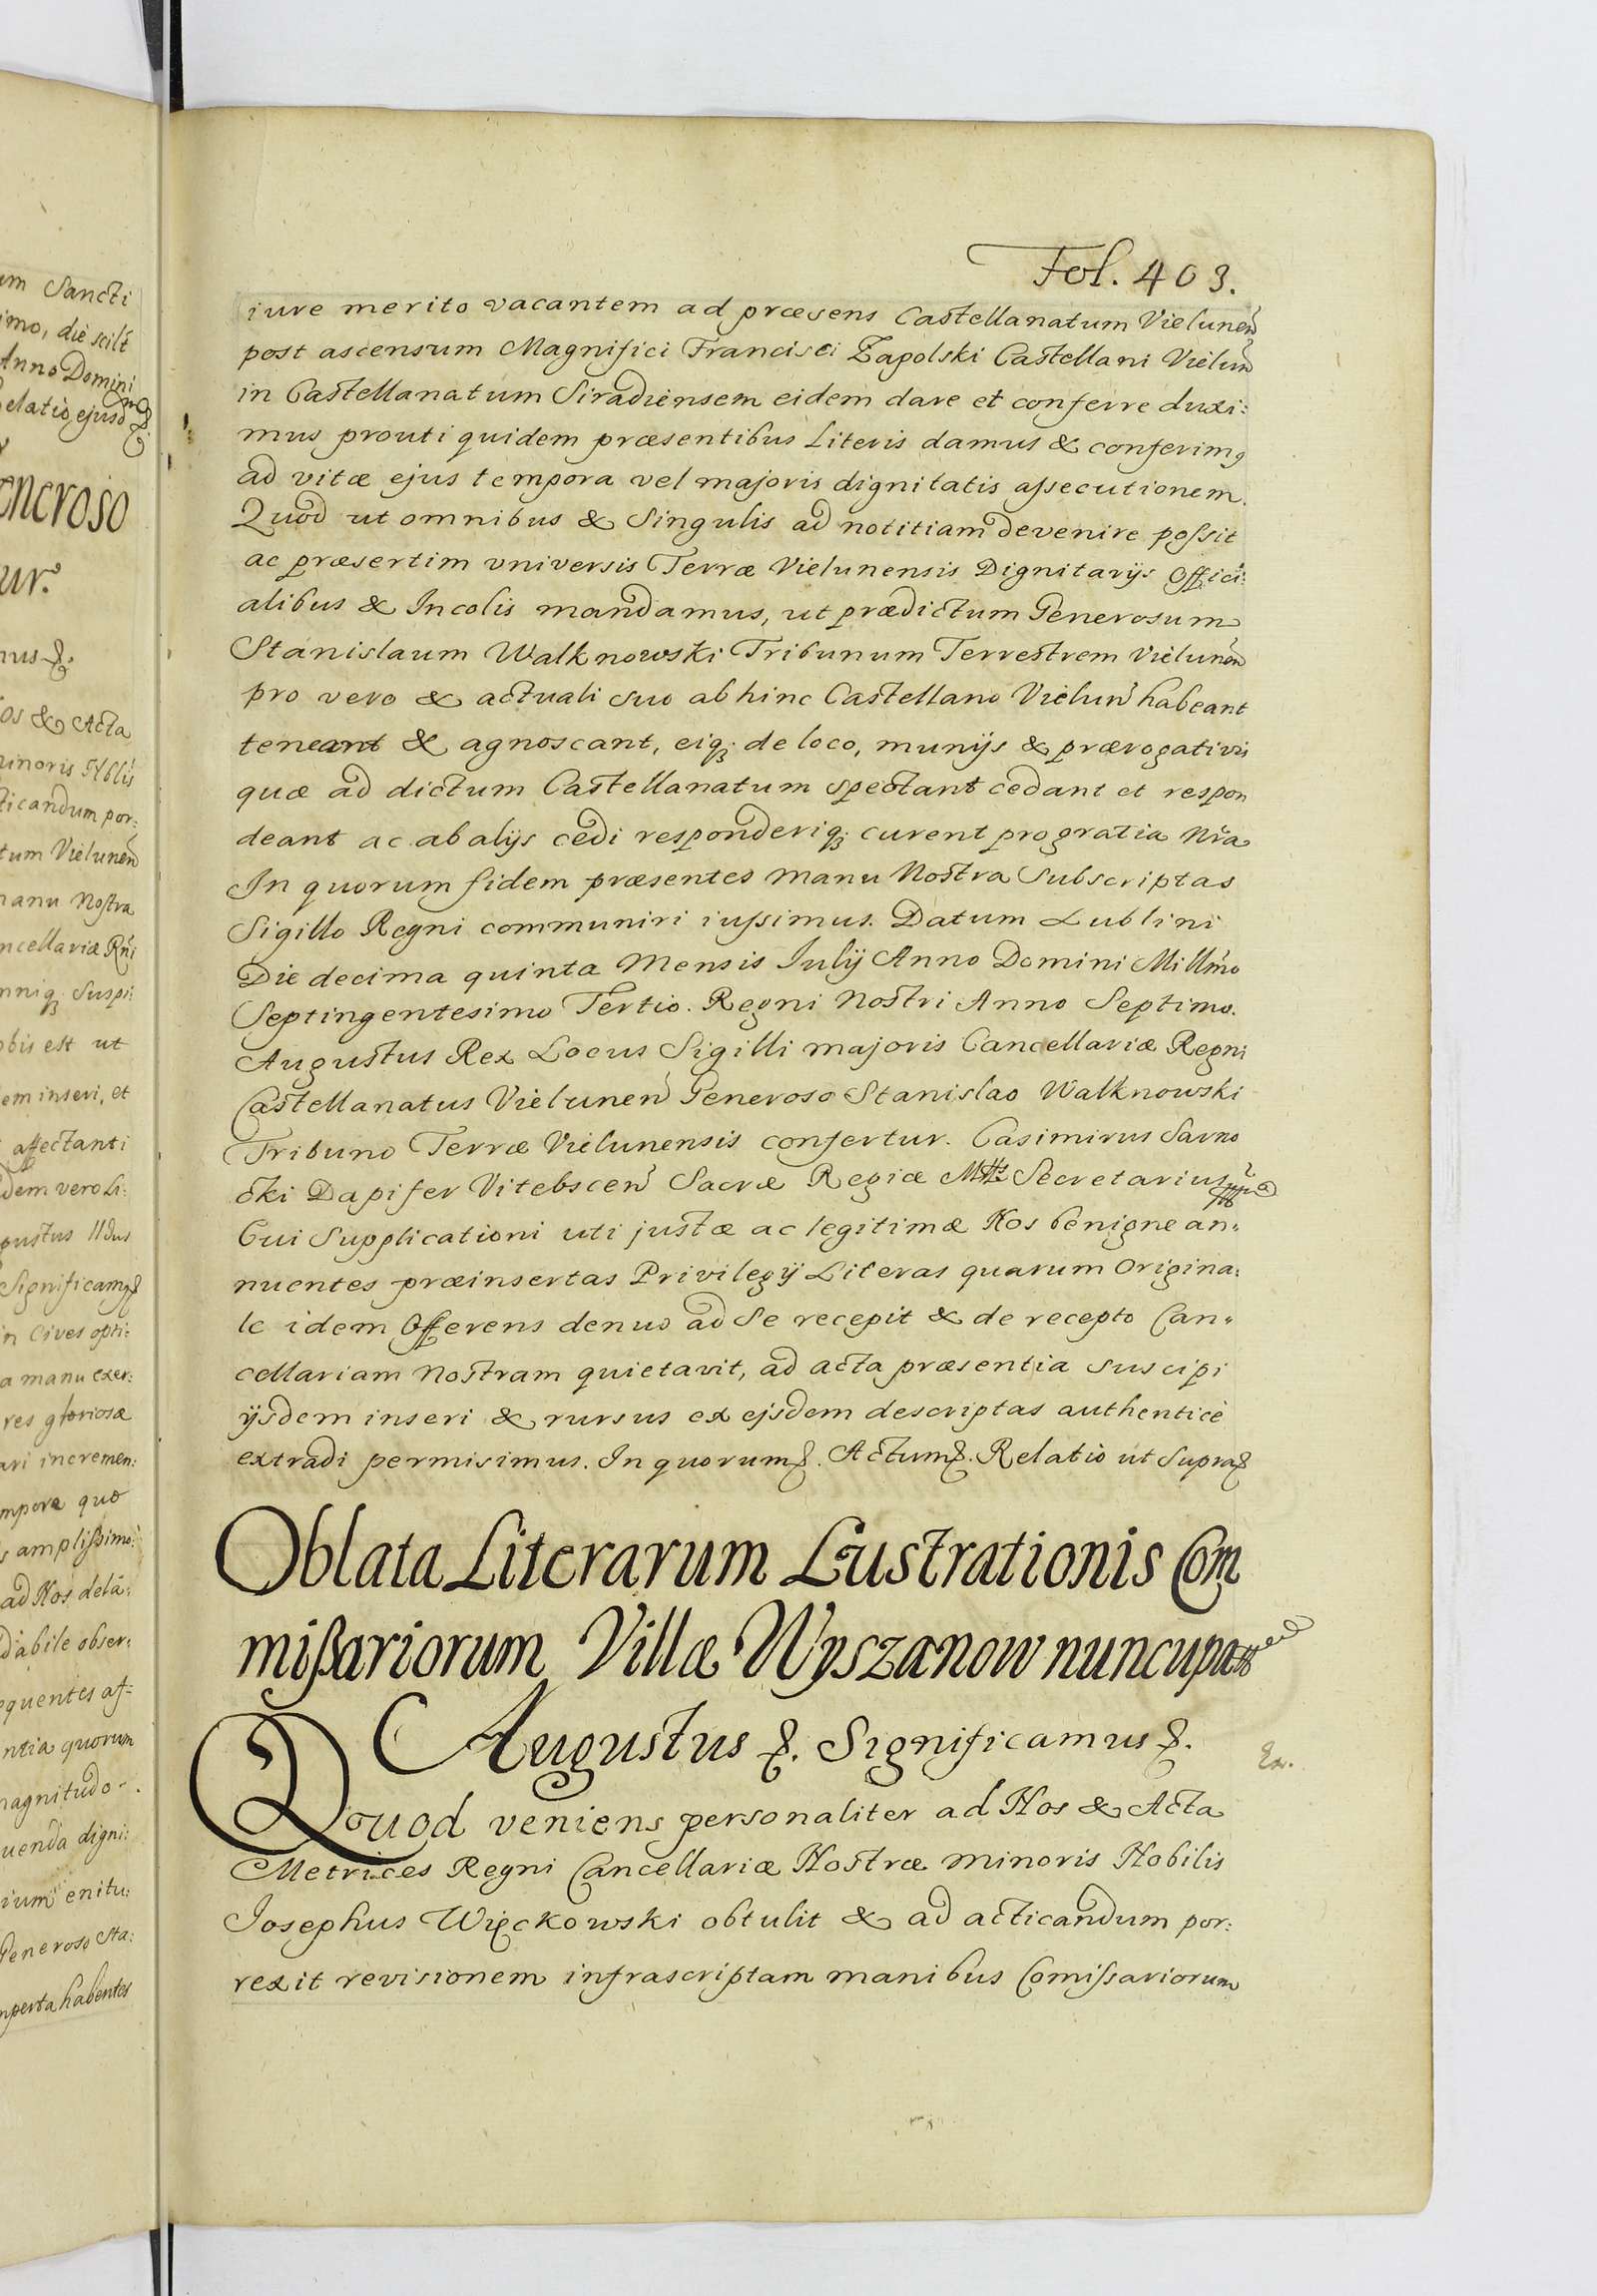 Fol. 403.
iure merito vacantem ad præsens Castellanatum Vielunen̄
post ascensum Magnifici Francisci Zapolski Castellani Vielun̄
in Castellanatum Siradiensem eidem dare et conferre duxi:
mus prouti quidem præsentibus Literis damus & conferimꝰ
ad vitæ ejus tempora vel majoris dignitatis aſsecutionem.
Quod ut omnibus & Singulis ad notitiam devenire poſsit
ac præsertim vniversis Terræ Vielunensis Dignitarijs Offici:
alibus & Incolis mandamus, ut prædictum Generosum
Stanislaum Walknowski Tribunum Terrestrem Vielunen̄
pro vero & actuali suo abhinc Castellano Vielun̄ habeant
teneant & agnoscant, eiq; de loco, munijs & prærogativis
quæ ad dictum Castellanatum spectant cedant et respon
deant ac ab alijs cedi responderiq; curent pro gratia Nr̄a
In quorum fidem præsentes manu Nostra Subscriptas
Sigillo Regni communiri iuſsimus. Datum Lublini
Die decima quinta Mensis Iulij Anno Domini Mill̄mo
Septingentesimo Tertio. Regni Nostri Anno Septimo.
Augustus Rex Locus Sigilli majoris Cancellariæ Regni
Castellanatus Vielunen̄ Generoso Stanislao Walknowski
Tribuno Terræ Vielunensis confertur. Casimirus Sarno
cki Dapifer Vitebscen̄ Sacræ Regiæ Mttis Secretarius
Cui Supplicationi uti justæ ac legitimæ Nos benigne an:
nuentes præinsertas Privilegij Literas quarum Origina:
le idem Offerens denuo ad Se recepit & de recepto Can:
cellariam Nostram quietavit, ad acta præsentia suscipi
ijsdem inseri & rursus ex ejsdem descriptas authenticè
extradi permisimus. In quorum &. Actum &. Relatio ut supra &
Oblata Literarum Lustrationis Com
mißariorum Villæ Wyszanow nuncupatæ
Augustus &. Significamus &.
Quod veniens personaliter ad Nos & Acta
Metrices Regni Cancellariæ Nostræ minoris Nobilis
Josephus Więckowski obtulit & ad acticandum por:
rexit revisionem infrascriptam manibus Comiſsariorum